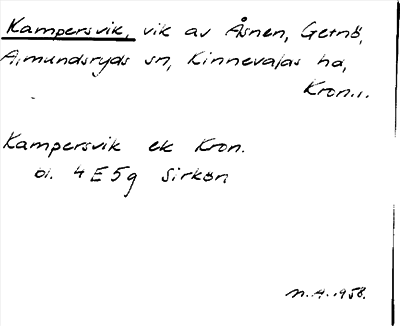 Kampersvik, vik av Åsnen, Getnö,
Almundsryds sn, Kinnevalds hd,
Kron.
Kampersvik ek Kron.
bl. 4E5g Sirkön
N.A. 1958.